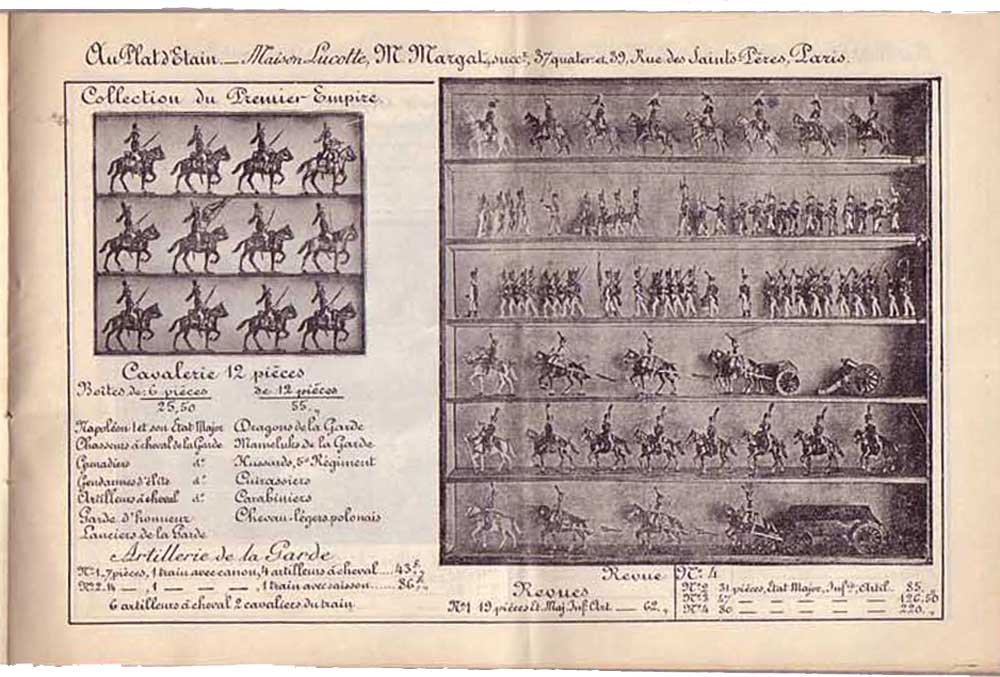 Au Plat d'Etain._Maison Lucotte, M. Margat, succr, 37 quater et 39, Rue des Saints-Pères, Paris.
Collection du Premier-Empire
Cavalerie 12 pièces
Boîtes de: 6 pièces de 12 pièces
25,50 55 „
Napoléon 1 et son État Major
Chasseurs à cheval de la Garde
Grenadiers d°
Gendarmes d'élite d°
Artilleurs à cheval d°
Garde d'honneur
Lanciers de la Garde
Dragons de la Garde
Mameluks de la Garde
Hussards, 5e Régiment
Cuirassiers
Carabiniers
Chevau-légers polonais
Artillerie de la Garde
N°1. 7 pièces, 1 train avec canon, 4 artilleurs à cheval....43f „
N°2. 14 _ , 1 _ _ , 1 train avec caisson......86 „
6 artilleurs à cheval 2 cavaliers du train
Revue N° 4
Revues
N°1 19 pièces Et. Maj. Inf. Art. __ 62 „
N°2 31 pièces, État Major, Infie, Artil.. 85 „
N°3 47 _ _ _ _ 126,50
N°4 80 _ _ _ _ 220 „